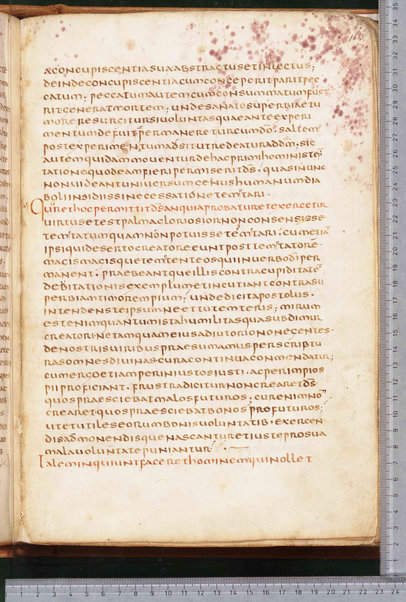 aconcupiscentia sua abstractus et inlectus;
deinde concupiscentia cum conceperit parit pec
catum; peccatum autem cum consummatum fue
rit generat mortem; unde sanato superbiae tu
more resurgit ursi voluntas quae ante experi
mentum defuit permanere cum do saltem
post experimentum adsit ut redeatur ad dm; sic
autem quidam moventur de hac primi hominis tem
tatione quod eam fieri permiserit ds quasi nunc
non videant universum genus humanum dia
boli insidiis sine cessatione temtari
Quare et hoc permittit ds an quia probatur et exercetur
virtus et est palma gloriosior non consensisse
temtatum quam non potuisse temtari cum etiam
ipsi qui deserto creatore eunt post temtatore
magis magisque temtent eos qui in verbo di per
manent praebeantque illis contra cupiditatem
devitationis exemplum et incutiant contra su
perbiam timorem pium; unde dicit apostolus
intendens te ipsum ne et tu temteris; mirum
est enim quantum ista humilitas qua subdimur
creatori ne tamquam eius adiutorio non egentes
de nostris viribus praesumamus per scriptu
ras omnes divinas cura continua commendatur;
cum ergo etiam per iniustos iusti ac per impios
pii proficiant frustra dicitur non crearet ds
quos praesciebat malos futuros; cur enim non
crearet quos praesciebat bonis profuturos;
ut et utiles eorum bonis voluntatib exercen
dis admonendisque nascantur et iuste pro sua
mala voluntate puniantur
Talem inquiunt faceret hominem qui nollet